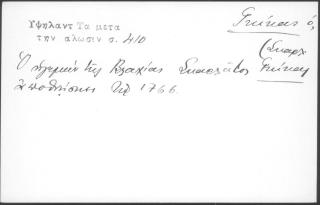 Υψηλαντ Τα μετα
την αλωσιν σ. 410
Γκίκας ὁ,
(Σκαρλ
Ὁ ἡγεμών τῆς Βλαχίας Σκαρλᾶτος Γκίκας
ἀποθνήσκει 1766.